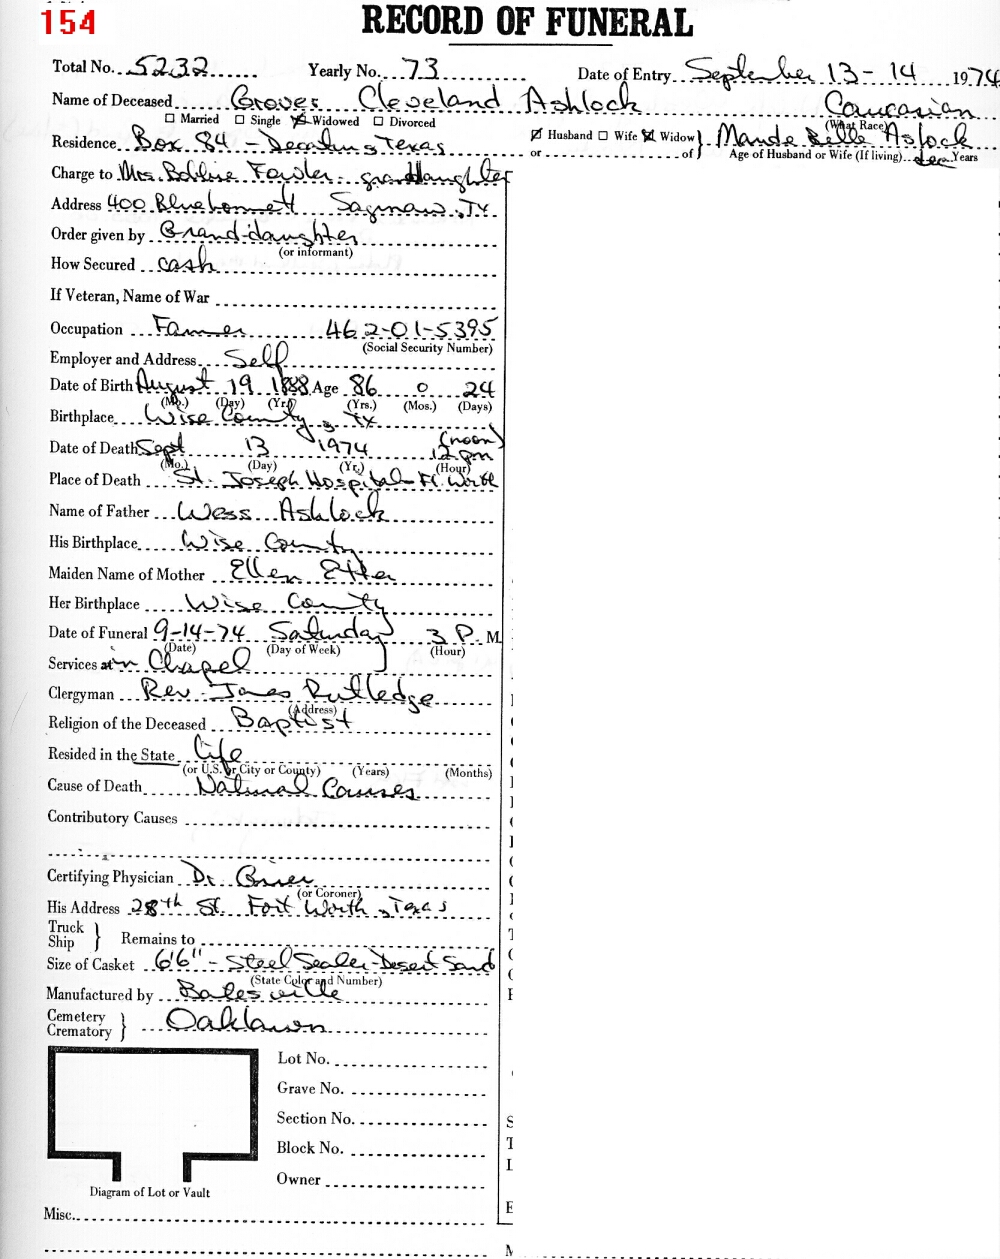 154
RECORD OF FUNERAL
Total No. 5232 Yearly No. 73 Date of Entry September 13-14 1974
Name of Deceased Grover Cleveland Ashlock Caucasian
☐ Married ☐ Single ☒ Widowed ☐ Divorced (What Race)
Residence Box 84 - Decatur, Texas ☒ Husband ☐ Wife ☒ Widow } Maude Belle Aslock
or of } Age of Husband or Wife (If living) dec Years
Charge to Mrs. Bobbie Fowler - granddaughter
Address 400 Bluebonnett Saginaw, Tx
Order given by Grand-daughter
(or informant)
How Secured cash
If Veteran, Name of War
Occupation Farmer 462-01-5395
(Social Security Number)
Employer and Address Self
Date of Birth August 19 1888 Age 86 0 24
(Mo.) (Day) (Yr.) (Yrs.) (Mos.) (Days)
Birthplace Wise County, Tx
(noon)
Date of Death Sept 13 1974 12 pm
(Mo.) (Day) (Yr.) (Hour)
Place of Death St. Joseph Hospital - Ft. Worth
Name of Father Wess Ashlock
His Birthplace Wise County
Maiden Name of Mother Ellen Etter
Her Birthplace Wise County
Date of Funeral 9-14-74 Saturday 3 P. M.
(Date) (Day of Week) (Hour)
Services at in Chapel
Clergyman Rev. James Rutledge
(Address)
Religion of the Deceased Baptist
Resided in the State Life
(or U.S. or City or County) (Years) (Months)
Cause of Death Natural Causes
Contributory Causes
Certifying Physician Dr.
(or Coroner)
His Address 28th St. Fort Worth, Texas
Truck
Ship } Remains to
Size of Casket 6'6" - Steel Sealer - Desert Sand
(State Color and Number)
Manufactured by Batesville
Cemetery
Crematory } Oaklawn
Lot No.
Grave No.
Section No.
Block No.
Owner
Diagram of Lot or Vault
Misc.